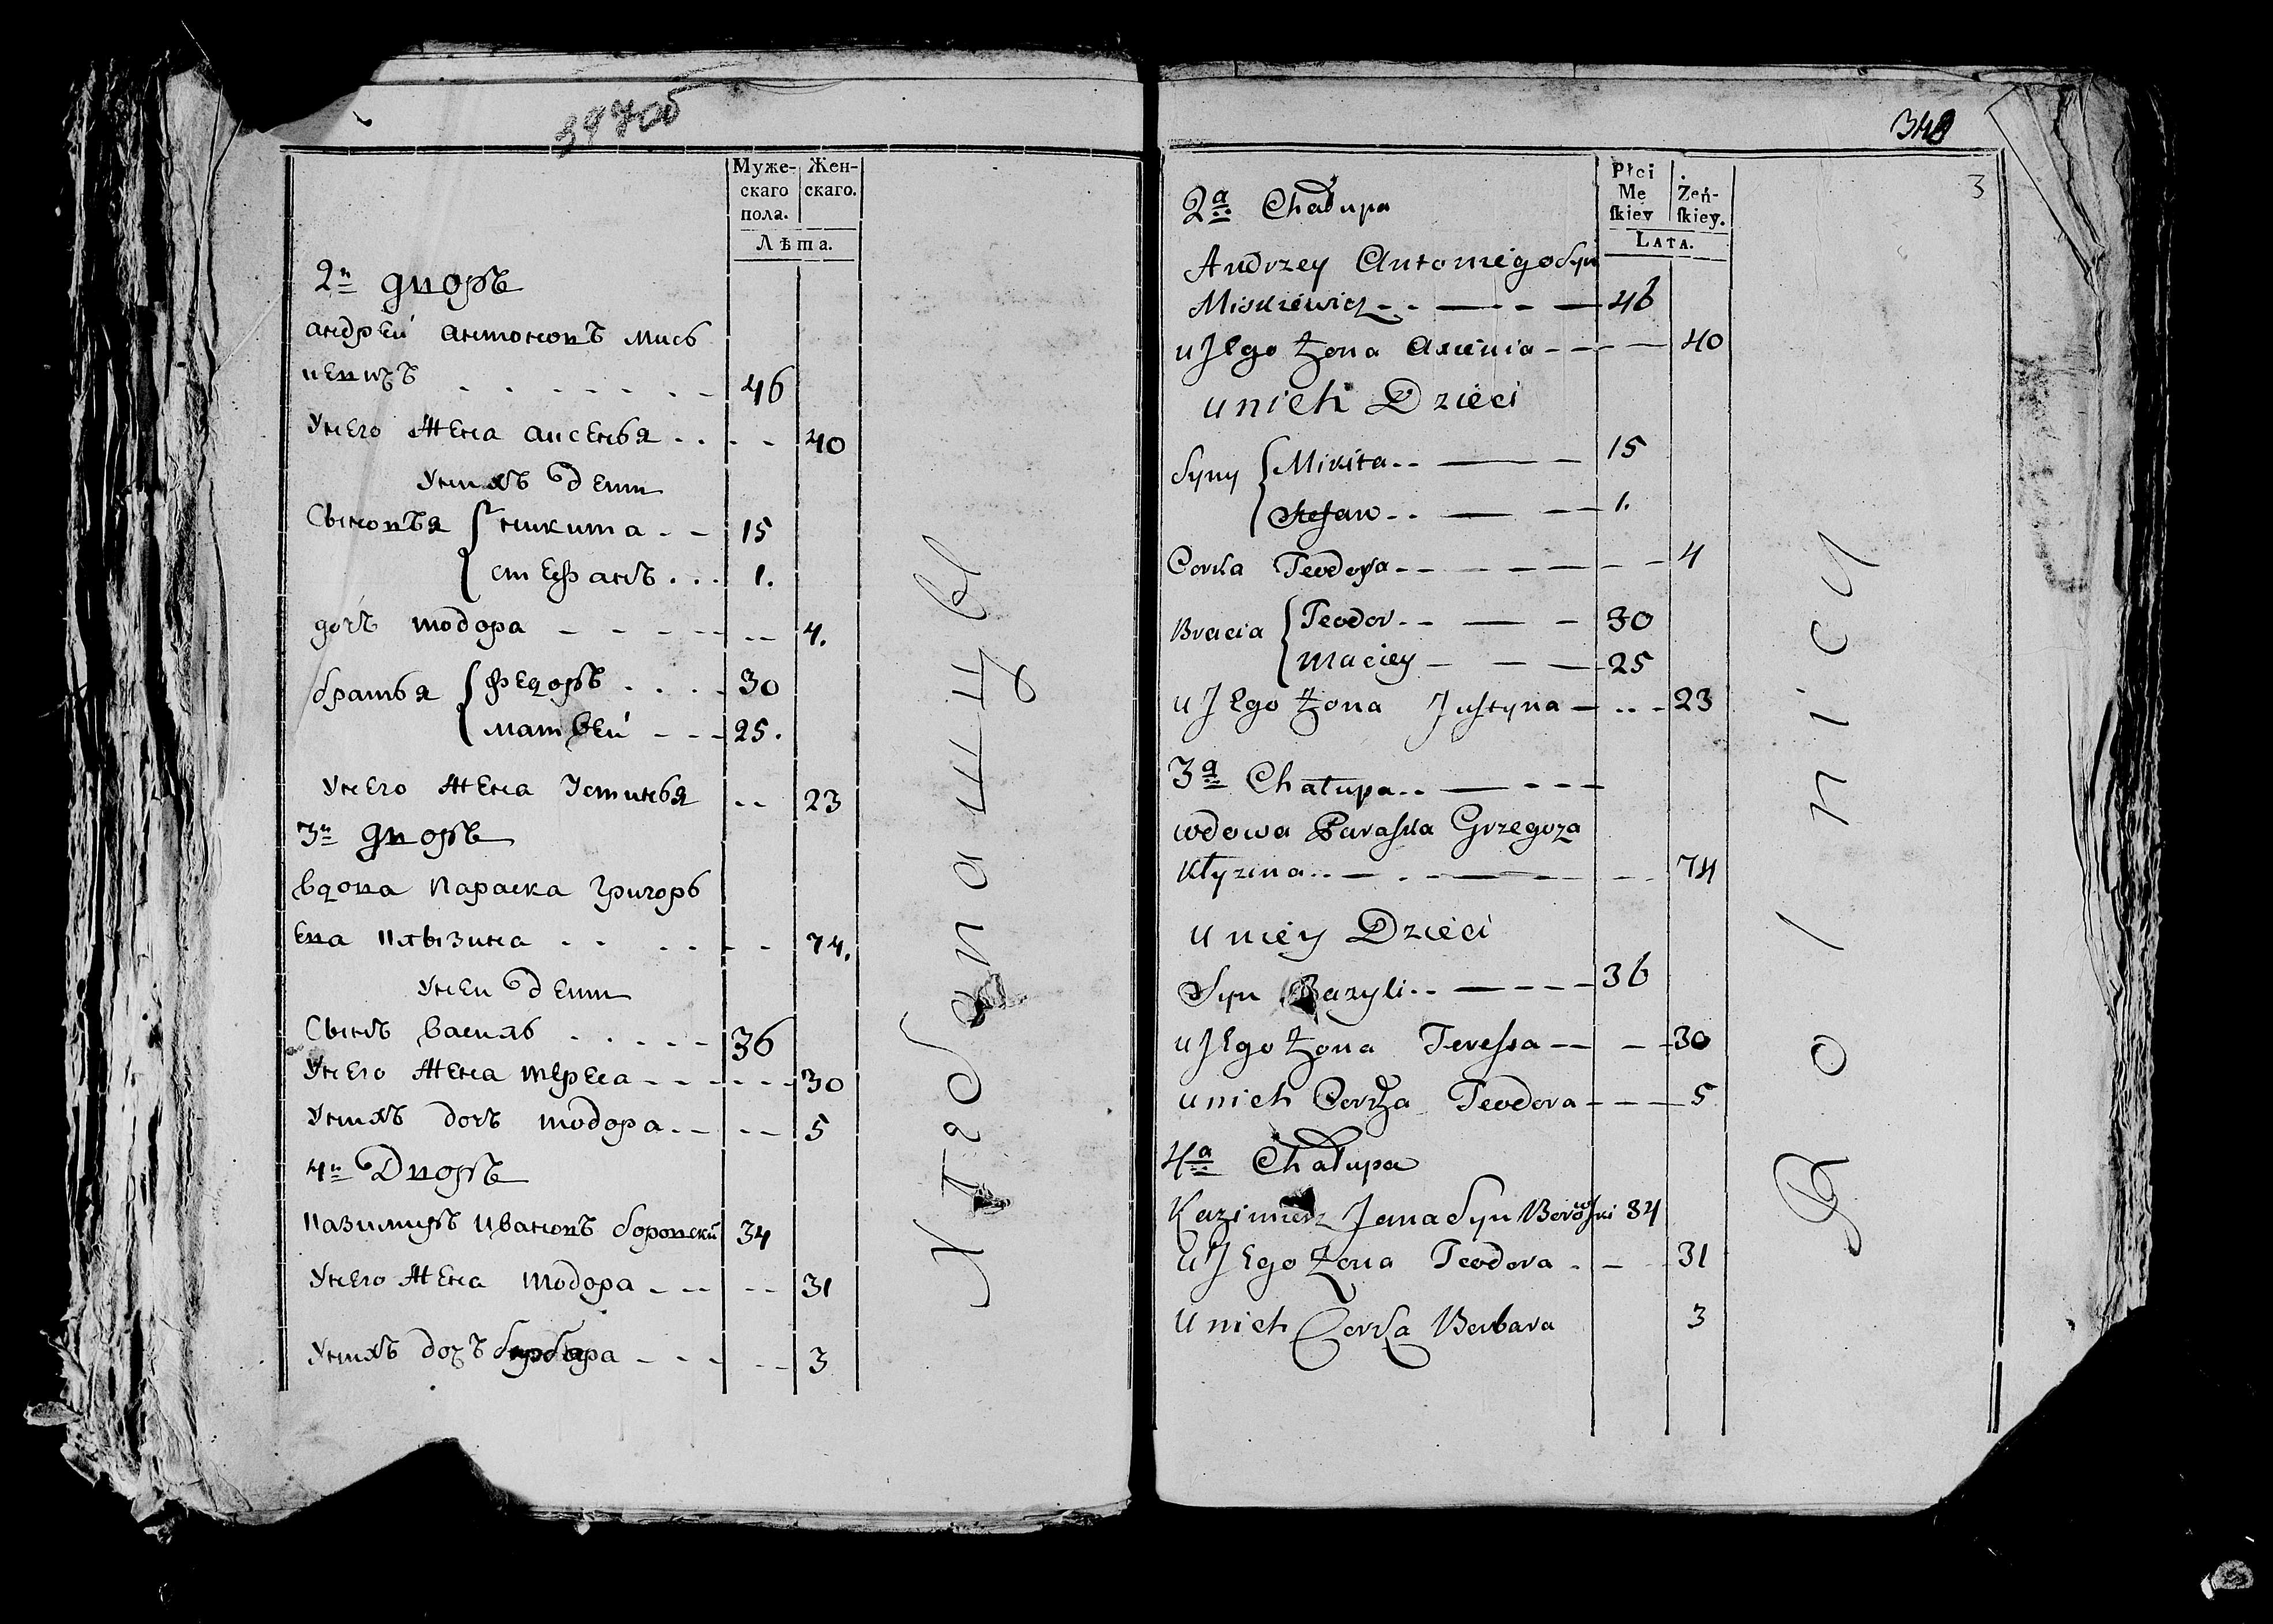 347об
Муже-
скаго
пола.
Жен-
скаго.
Лѣта.
2й дворъ
андрей антоновъ мись
кевичъ 46
Унего жена аксенья 40
Унихъ дети
Сыновья никита 15
стефанъ 1.
дочь тодора 4.
братья федоръ 30
матвеи 25.
Унего жена Устинья 23
3й дворъ
вдова параска григорь
ева клызина 74.
Унеи дети
Сынъ василь 36
Унего жена тереса 30
Унихъ дочь тодора 5
4й Дворъ
казимиръ ивановъ боровски 34
Унего жена тодора 31
Унихъ дочь барбара 3
Хлебопашцы
348
3
Płci
Mę
ſkiey
Żeń-
ſkiey.
LATA.
2a Chałupa
Andrzey Antoniego Syn
Miskiewicz 46
u Jego Żona Axienia 40
u nich Dzieci
Syny Mikita 15
Stefan 1.
Corka Teodora 4
Bracia Teodor 30
Maciey 25
u Jego Żona Justyna 23
3a Chałupa
wdowa Paraska Grzegorza
Kłyzina 74
u niey Dzieci
Syn Bazyli 36
u Jego Żona Teressa 30
u nich Corka Teodora 5
4a Chałupa
Kazimierz Jana Syn Borowski 34
u Jego Żona Teodora 31
u nich Corka Barbara 3
Rolnicy